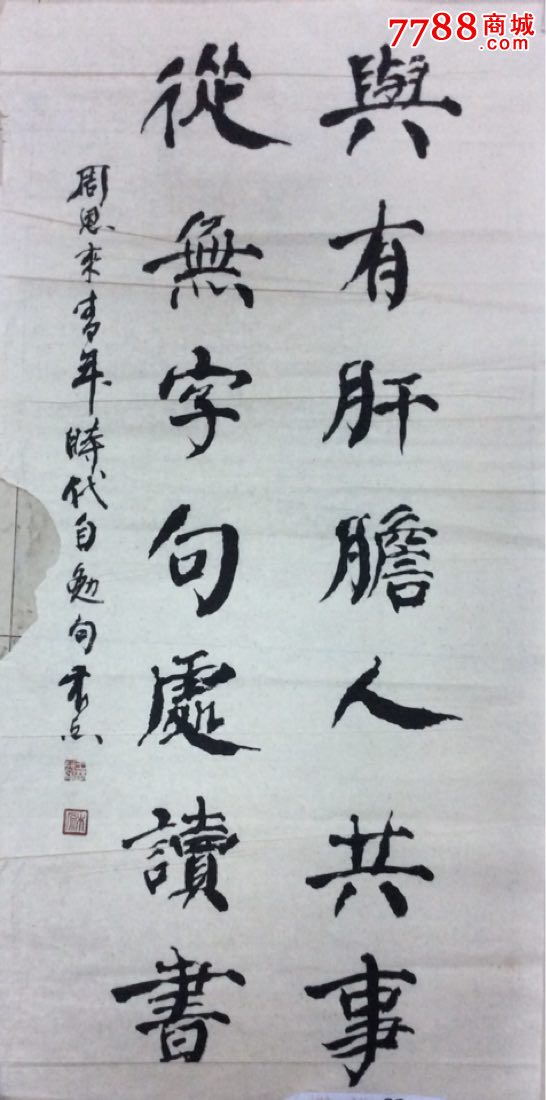 7788商城
.com
與有肝膽人共事
從無字句處讀書
周恩來青年時代自勉句